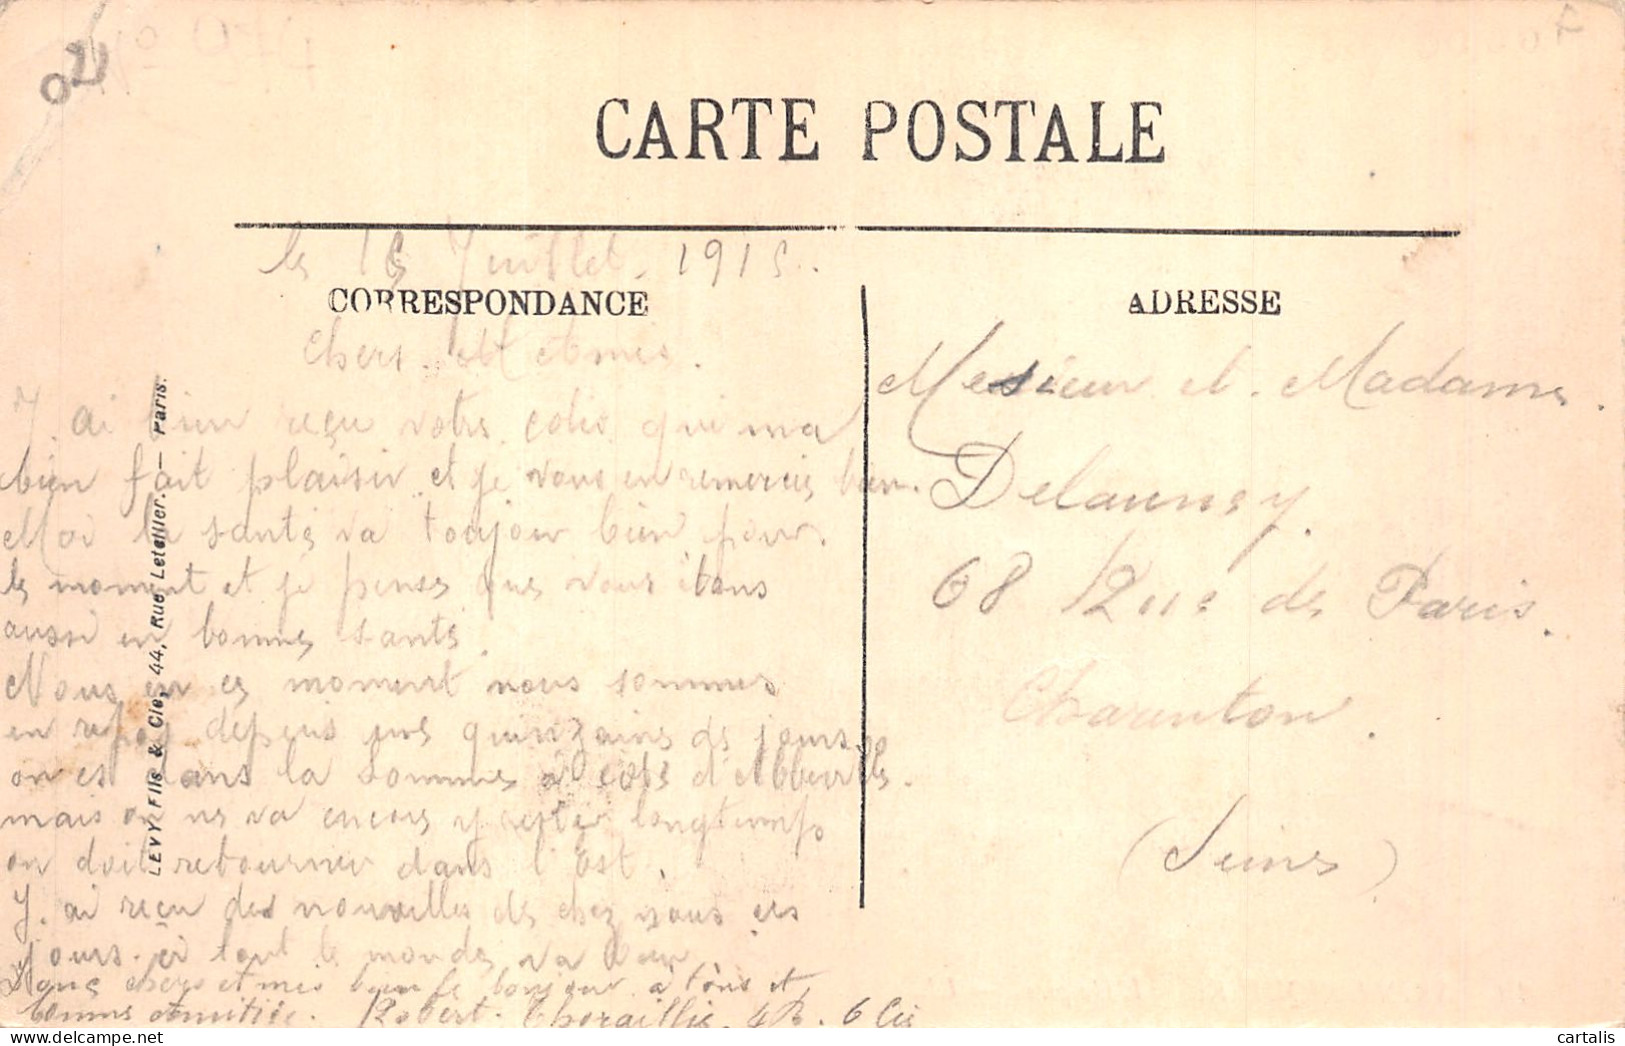 CARTE POSTALE
le 15 Juillet. 1915.
CORRESPONDANCE
Chers. et Amis.
J ai bien reçu votre colis qui ma
bien fait plaisir et je vous en remercie bien.
Moi la santé va toujour bien pour.
le moment et je pense que vous êtons
aussi en bonne santé.
Nous en ce moment nous sommes
en repos depuis une quinzaine de jours.
on est dans la Somme à côté d'Abbeville.
mais on ne va encore y rester longtemps
on doit retourner dans l'Est.
J. ai reçu des nouvelles de chez nous ces
jours-ci tout le monde va bien.
Donc chers et mes bien le bonjour à tous et
bonne amitiée. Robert. 6 Cie
LEVY Fils & Cie, 44, Rue Letellier. — Paris.
ADRESSE
Mesieur et. Madame.
Delaunay.
68 Rue de Paris.
Charenton.
(Seine)
cartalis
delcampe.net